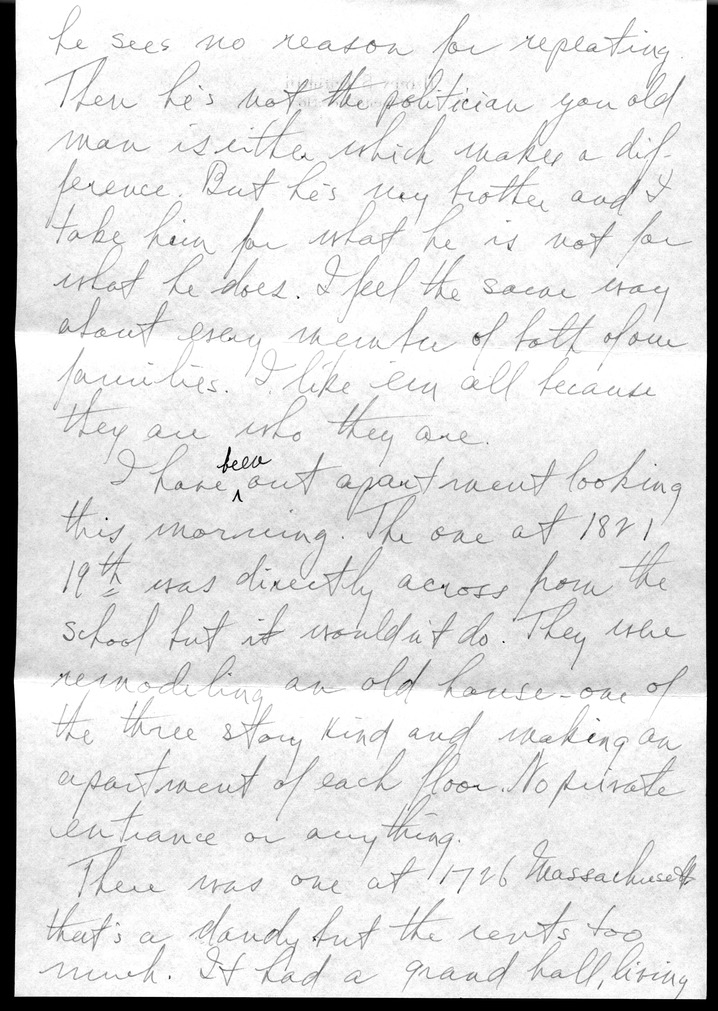 he sees no reason for repeating.
Then he's not the politician you old
man is either which makes a dif-
ference. But he's my brother and I
take him for what he is not for
what he does. I feel the same way
about every member of both of our
families. I like 'em all because
they are who they are.
I have been out apartment looking
this morning. The one at 1821
19th was directly across from the
school but it wouldn't do. They were
remodeling an old house - one of
the three story kind and making an
apartment of each floor. No private
entrance or anything.
There was one at 1726 Massachusetts
that's a dandy but the rents too
much. It had a grand hall, living